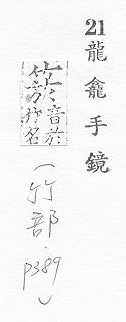 21 龍龕手鏡
音於
名
（竹部．p389）